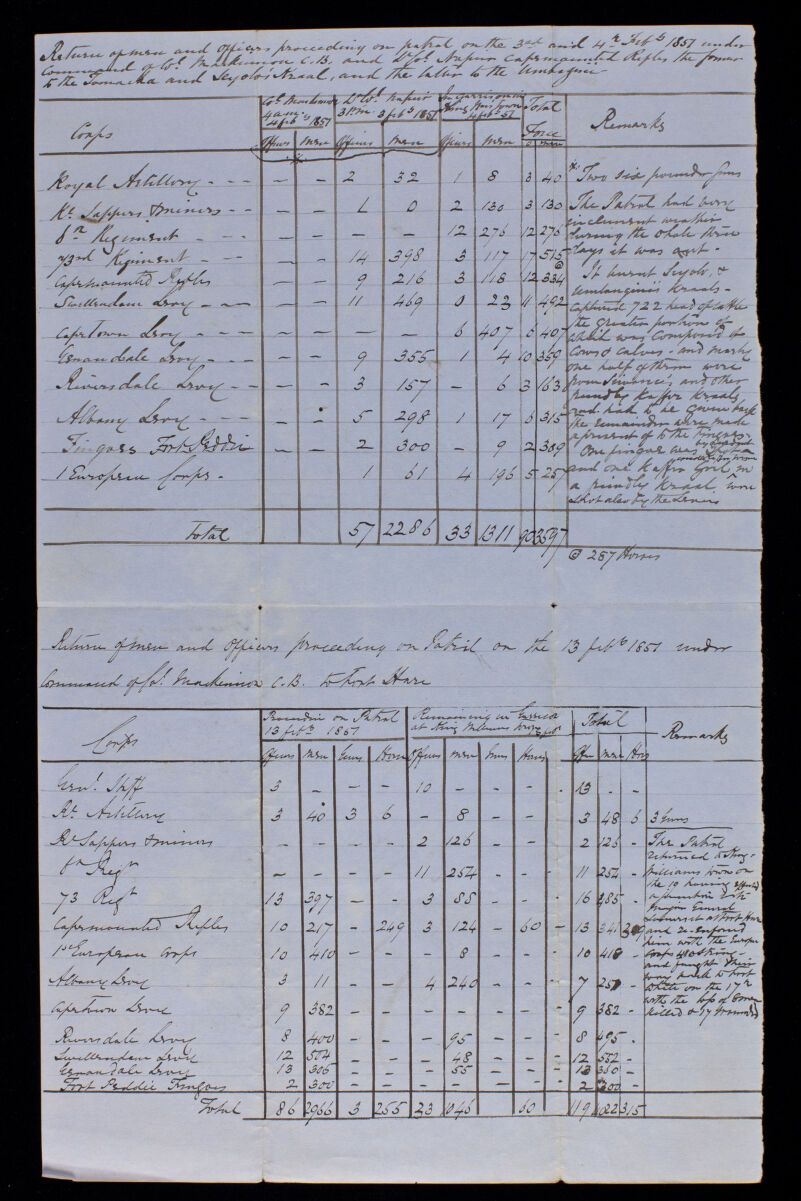 Return of men and officers proceeding on patrol on the 3rd and 4th Feby 1851 under
Command of Col. Mackinnon C.B. and Lt Col. Napier Cape mounted Rifles the former
to the Tamacha and Seyolo's Kraal, and the latter to the
Corps
Col. Mackinnon 4 am 4 feby 1851
Lt Col. Napier 3 P.m. 3 feby 1851
In garrison in King Wms Town 4 feby 51
Total Force
Remarks
Officers men Officers men Officers men O men
Royal Artillery - - - - - 2 32 1 8 3 40
Rl Sappers & miners - - - - 1 0 2 130 3 130
6th Regiment - - - - - - 12 276 12 276
73rd Regiment - - - - 14 398 3 117 17 515
Cape mounted Rifles - - 9 216 3 118 12 334
Swellendam Levy - - - - 11 469 0 23 11 492
Cape Town Levy - - - - - - 6 407 6 407
Genandale Levy - - - - 9 355 1 4 10 359
Riversdale Levy - - - - 3 157 - 6 3 163
Albany Levy - - - - 5 298 1 17 6 315
Fingoes Fort Peddie - - 2 300 - 9 2 309
1 European Corps - 1 61 4 196 5 257
Total 57 2286 33 1311 90 3597
Two six pounder guns
The Patrol had very
inclement weather
during the whole three
days it was out -
It burnt Seyolo, &
Kraals -
captured 722 head of cattle
the greater portion of
which was Composed of
Cows & Calves - and nearly
one half of them were
from and other
friendly Kaffir Kraals
and had to be given back
the remainder were made
a present of to the Fingoes -
One fingoe was shot
and one Kaffir Girl in
a friendly Kraal were
shot also by the Levies
287 Horses
Return of men and officers proceeding on Patrol on the 13 feby 1851 under
Command of Col. Mackinnon C.B. to Fort Hare
Corps
Proceeding on Patrol 13 feby 1851
Remaining in Garrison at King Williams Town
Total
Remarks
Officers men Guns Horses Officers men Guns Horses Offrs men Hors
Genl Staff 3 - - - 10 - - - - 13 - -
Rl Artillery 3 40 3 6 - 8 - - - 3 48 6
Rl Sappers & miners - - - - 2 126 - - - 2 126 -
6th Regt - - - - 11 254 - - - 11 254 -
73 Regt 13 397 - - 3 88 - - - 16 485 -
Cape mounted Rifles 10 217 - 249 3 124 - 60 - 13 341 309
1st European Corps 10 410 - - - 8 - - - 10 418 -
Albany Levy 3 11 - - 4 240 - - - 7 251 -
Cape town Levy 9 382 - - - - - - - 9 382 -
Riversdale Levy 8 400 - - - 95 - - - 8 495 -
Swellendam Levy 12 504 - - - 48 - - - 12 552 -
Genandale Levy 13 305 - - - 55 - - - 13 360 -
Fort Peddie Fingoes 2 300 - - - - - - - 2 300 -
Total 86 2966 3 255 33 1046 60 - 119 4022 315
3 Guns
The Patrol
returned to King
Williams town on
the 19 having effected
a junction with
Major General
Somerset at Fort Hare
and re-enforced
him with the Europn
Corps
and fought their
way back to Fort
White on the 17th
with the loss of 8 men
killed & 17 wounded